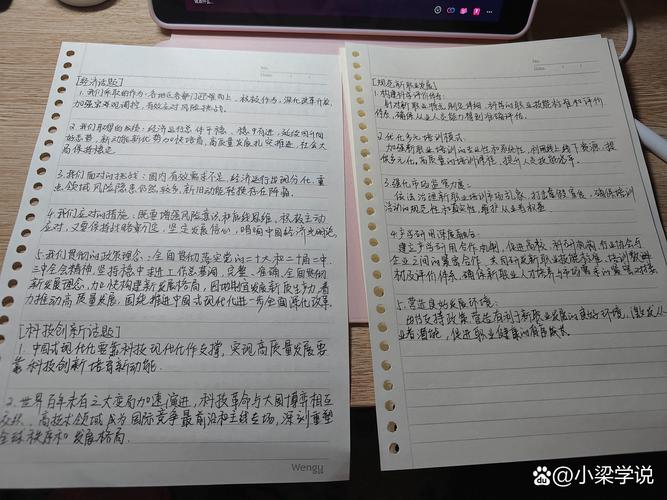 [经济话题]
1. 我们采取的作为：各地区各部门迎难而上、积极作为，深化改革开放，
加强宏观调控，有效应对风险挑战。
2. 我们取得的成绩：经济运行总体平稳、稳中有进，延续回升向
好态势，新动能新优势加快培育，高质量发展扎实推进，社会大
局保持稳定。
3. 我们面对的挑战：国内有效需求不足，经济运行出现分化，重
点领域风险隐患仍然较多，新旧动能转换存在阵痛。
4. 我们应对的措施：既要增强风险意识和底线思维，积极主动
应对，又要保持战略定力，坚定发展信心，唱响中国经济光明论。
5. 我们贯彻的政策理念：全面贯彻落实党的二十大和二十届二中、
三中全会精神，坚持稳中求进工作总基调，完整、准确、全面贯彻
新发展理念，加快构建新发展格局，因地制宜发展新质生产力，着
力推动高质量发展，围绕推进中国式现代化进一步全面深化改革。
[科技创新话题]
1. 中国式现代化要靠科技现代化作支撑，实现高质量发展要
靠科技创新培育新动能.
2. 世界百年未有之大变局加速演进，科技革命与大国博弈相互
交织，高技术领域成为国际竞争最前沿和主战场，深刻重塑
全球秩序和发展格局.
Wengu
No.
Date
[规范新职业发展]
1. 构建科学评价体系：
针对新职业特点，制定详细、科学的职业技能标准和评价
体系，确保从业人员能力得到准确评估。
2. 优化多元培训模式：
加强新职业培训的专业性和系统性，利用线上线下资源，提
供多元化、高质量的培训课程，提升人员技能水平。
3. 强化市场监管力度：
依法治理新职业培训市场乱象，打击虚假宣传，确保培训
活动的规范性和真实性，维护从业者权益.
4. 产学研用深度融合：
建立产学研用合作机制，促进高校、科研机构、行业协会与
企业之间的紧密合作，共同
材及评价体系，确保新职业人才培养与市场需求的紧密对接.
5. 营造良好发展环境：
出台支持政策，营造有利于新职业发展的良好环境，激发从
业者潜能，促进职业健康
No.
Date
小梁学说